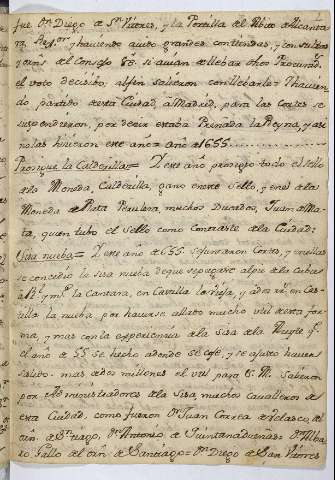 fue Dn Diego de Sn Vitores, y la Portilla del Abito de Alcanta
ra, y haviendo avido grandes contiendas, y consultas
y orns del Consejo Rl si avian de llebar otros Procurad.
el voto decisibo, al fin salieron con llebarle= Y havien
do partido desta Ciudad, a Madrid, para las Cortes se
suspendieron, por decir estaba Preñada la Reyna, y asi
no las hicieron este año= año de 1655
Prosigue la Calderilla= Y este año prosiguio todo el sello
de la Moneda, Calderilla, gano en este sello, y en el de la
Moneda de Plata Perulera, muchos Ducados, Juan de Ma
ta, quien tubo el sello como Contraste de la Ciudad=
Sisa nueba= Y este año de 655. se juntaron Cortes, y en ellas
se concedio la sisa nueba de que se pagase al pie de la cuba
la Cantara, en Castilla la Vieja, y a dos rs en Cas-
tilla la nueba, por haverse allado mucho util desta for
ma, y mas con la experiencia de la Sisa de la
el año de 55 se hecho adonde se coje, y se ajusto haver
valido mas de dos millones el util para S. M. Salieron
por Administradores de la Sisa, muchos Cavalleros de
esta Ciudad, como fueron Dn Juan Correa de Velasco, del
orn de Stiago, Dn Antonio de Quintanadueñas, Dn Alba
ro Gallo del orn de Santiago= Dn Diego de San Vitores